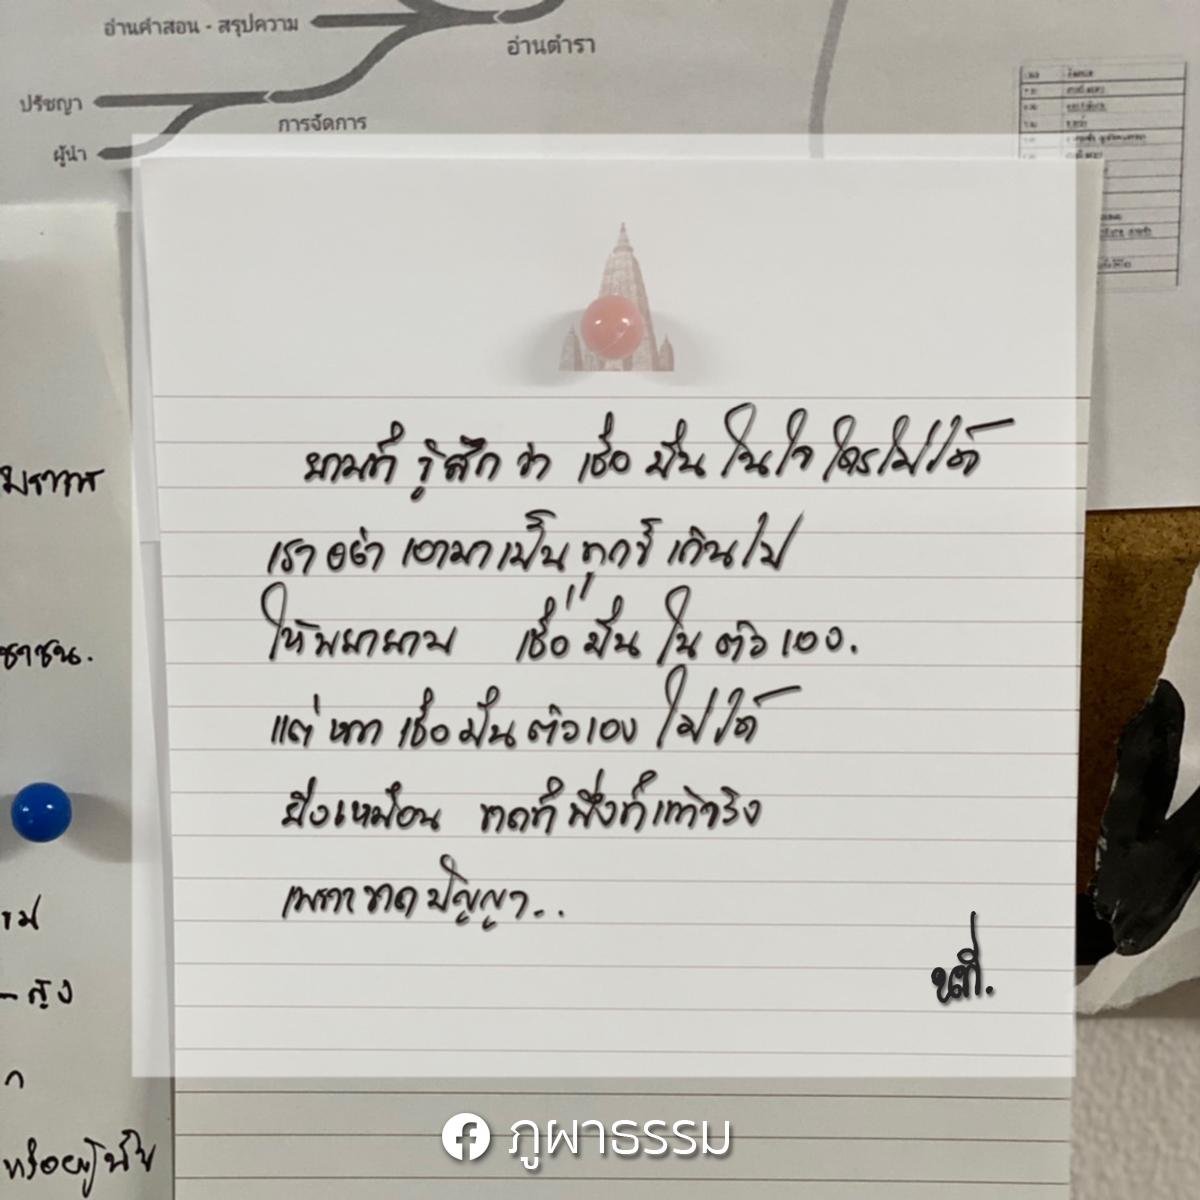 อ่านคำสอน - สรุปความ
อ่านตำรา
ปรัชญา
การจัดการ
ผู้นำ
ยามที่ รู้สึก ว่า เชื่อ มั่น ในใจ ใครไม่ได้
เรา อย่า เอามาเป็น ทุกข์ เกินไป
ให้พยายาม เชื่อ มั่น ใน ตัว เอง.
แต่ หาก เชื่อ มั่น ตัวเอง ไม่ได้
ยิ่งเหมือน ขาดที่ พึ่งที่แท้จริง
เพราะ ขาด ปัญญา...
นที.
ชาชน.
ภูผาธรรม